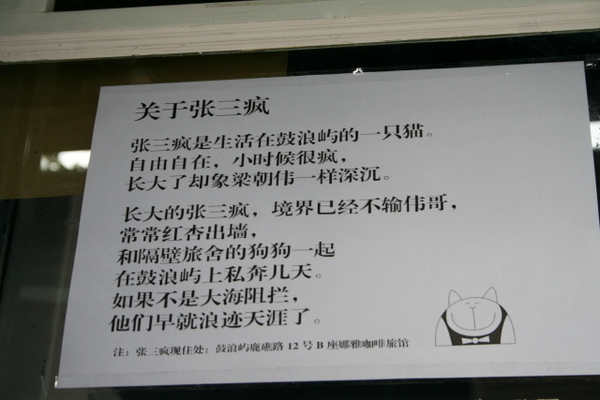 关于张三疯
张三疯是生活在鼓浪屿的一只猫。
自由自在，小时候很疯，
长大了却象梁朝伟一样深沉。
长大的张三疯，境界已经不输伟哥，
常常红杏出墙，
和隔壁旅舍的狗狗一起
在鼓浪屿上私奔几天。
如果不是大海阻拦，
他们早就浪迹天涯了。
注：张三疯现住处：鼓浪屿鹿礁路 12 号 B 座娜雅咖啡旅馆